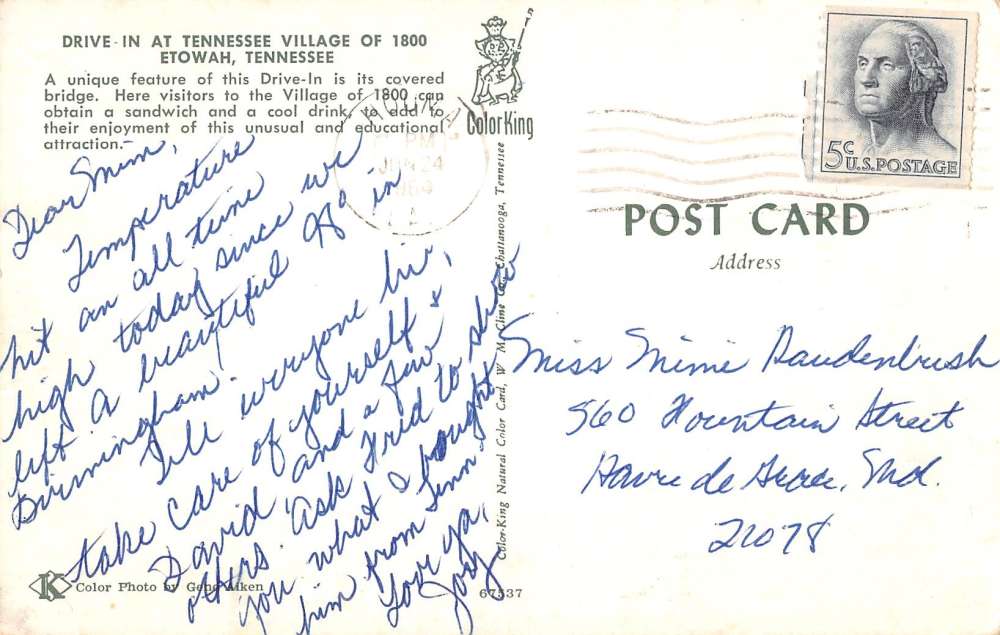 DRIVE-IN AT TENNESSEE VILLAGE OF 1800
ETOWAH, TENNESSEE
A unique feature of this Drive-In is its covered
bridge. Here visitors to the Village of 1800 can
obtain a sandwich and a cool drink, to add to
their enjoyment of this unusual and educational
attraction.
ColorKing
Dear Mim,
Temperature
hit an all time
high today since we
left a beautiful 98° in
Birmingham.
Tell everyone hi,
take care of yourself &
David and a few
others. Ask Fred to show
you what I bought
him from Tenn.
Love ya,
Jody
K
Color Photo by Gene Aiken
67537
Color-King Natural Color Card, W. M. Cline Co., Chattanooga, Tennessee
PM
24
5c
U.S. POSTAGE
POST CARD
Address
Miss Mimi Raudenbush
560 Fountain Street
Havre de Grace, Md.
21078